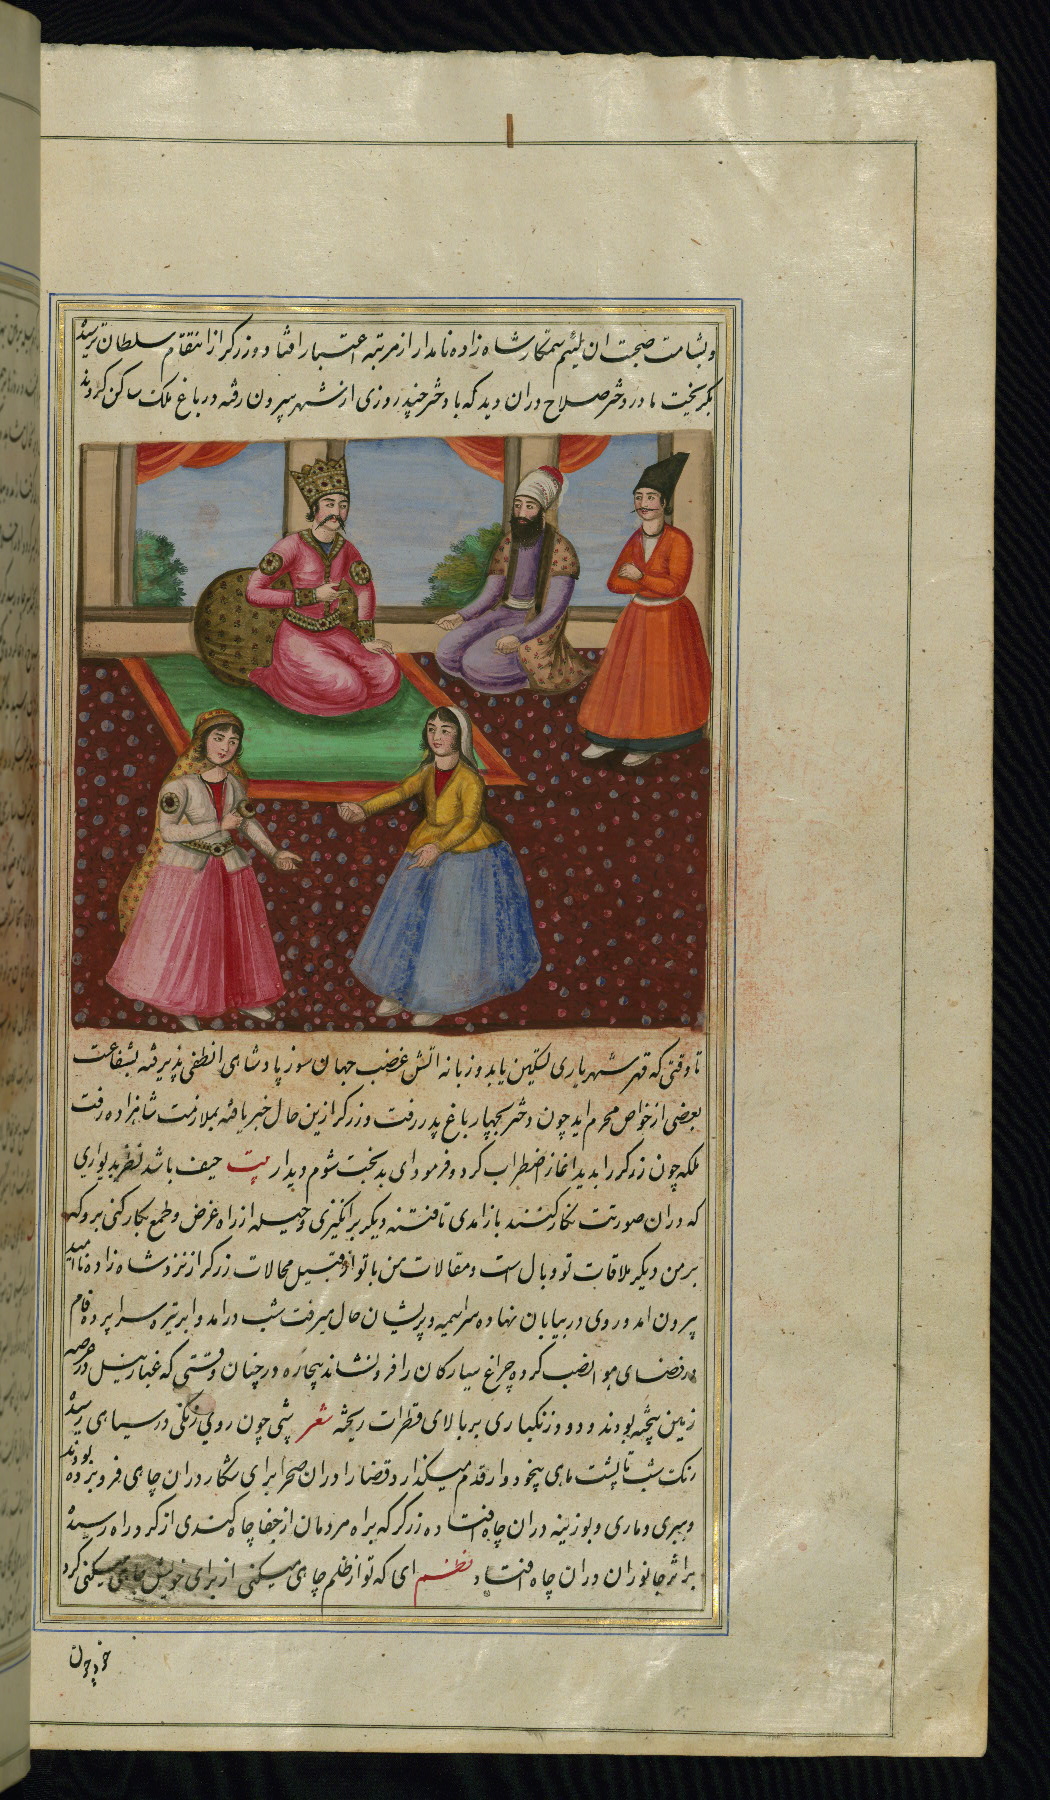 و بشامت صحبت ان لئیم ستمکار شاه زاده نامدار از مرتبه اعتبار افتاد و زرکر از انتقام سلطان ترسیده
بکریخت مادر دختر صلاح دران دید که با دختر چند روزی از شهر بیرون رفته در باغ ملک ساکن کردند
تا وقتی که قهر شهریاری تسکین یابد و زبانه آتش غضب جهان سوز پادشاهی انطفی پذیرفته بشفاعت
بعضی از خواص محرم اید چون دختر بچهار باغ پدر رفت و زرکر ازین حال خبر یافته بملازمت شاهزاده رفت
ملکه چون زرکر را بدید اغاز اضطراب کرد و فرمود ای بدبخت شوم دیدار بیت حیف باشد نظر بدیواری
که دران صورتت نکار کنند باز امدی تا فتنه دیکر برانکیزی و حیله از راه غرض و طمع بکار کنی برو که
بر من دیکر ملاقات تو وبال است و مقالات من با تو از قبیل محالات زرکر از نزد شاه زاده ناامید
بیرون امد و روی در بیابان نهاده سراسیمه و پریشان حال میرفت شب درامد و ابر تیره سراپرده فام
در فضای هوا نصب کرده چراغ سیارکان را فرونشاند بیچاره در چنان وقتی که غبار نیل در عرصه
زمین بیخته بودند و دوده زنکباری بر بالای قطرات ریخته شعر شبی چون روی زنکی در سیاهی رسیده
رنک شب تا پشت ماهی بیخود وار قدم میکذارد قضا را دران صحرا برای شکار دران چاهی فرو برده بودند
و ببری و ماری و بوزینه دران چاه افتاده زرکر که براه مردمان از جفا چاه کندی از کرد راه رسیده
بر اثر جانوران دران چاه افتاد نظم ای که تو از ظلم چاهی میکنی از برای خویش چاهی میکنی کرد
خود چون